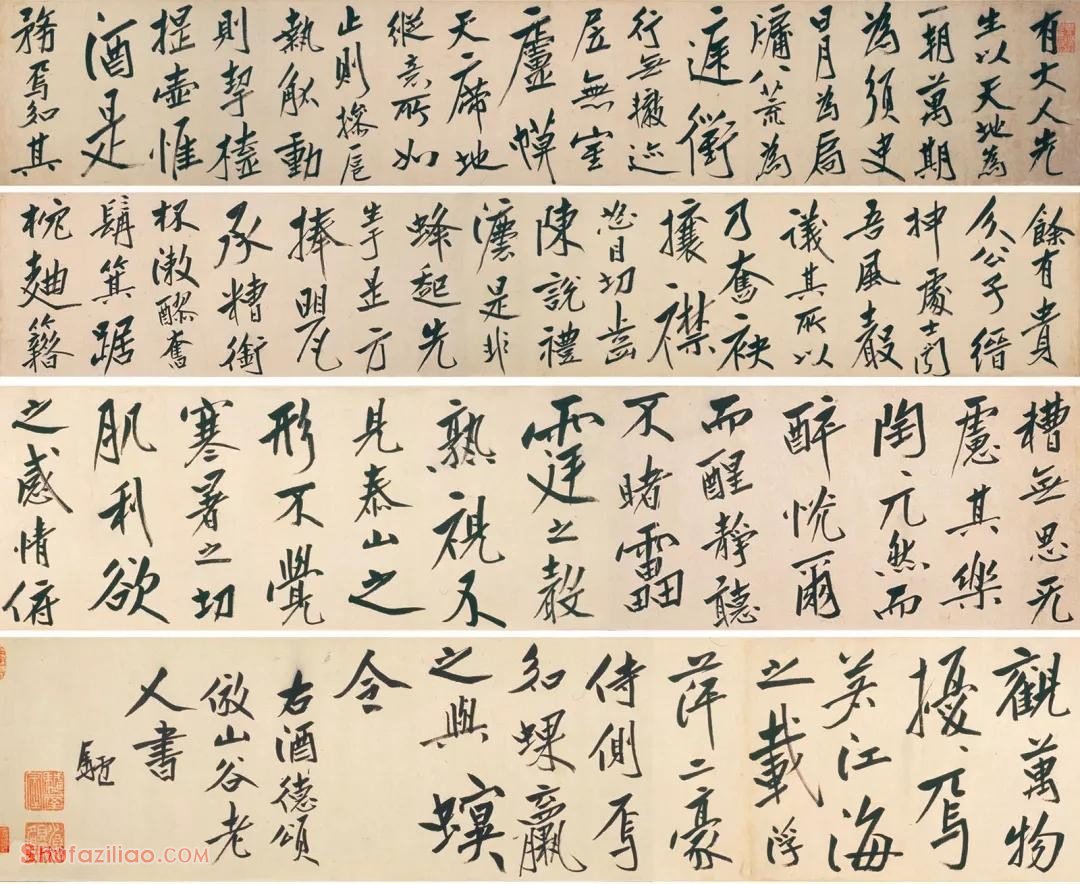 有大人先
生以天地為
一朝萬期
為須臾
日月為扃
牖八荒為
庭衢
行無轍迹
居無室
廬幙
天席地
縱意所如
止則操卮
執觚動
則挈榼
提壺惟
酒是
務焉知其
餘有貴
介公子縉
紳處士聞
吾風聲
議其所以
乃奮袂
攘襟
怒目切齒
陳說禮
灋是非
蜂起先
生于是方
捧罌
承糟銜
杯漱醪奮
髯箕踞
枕麯籍
糟無思无
慮其樂
陶〻兀然而
醉怳爾
而醒靜聽
不睹雷
霆之聲
熟視不
見泰山之
形不覺
寒暑之切
肌利欲
之感情俯
觀萬物
擾〻焉
若江海
之載浮
萍二豪
侍側焉
知蜾蠃
之與螟
令
右酒德頌
倣山谷老
人書
Shufaziliao.com